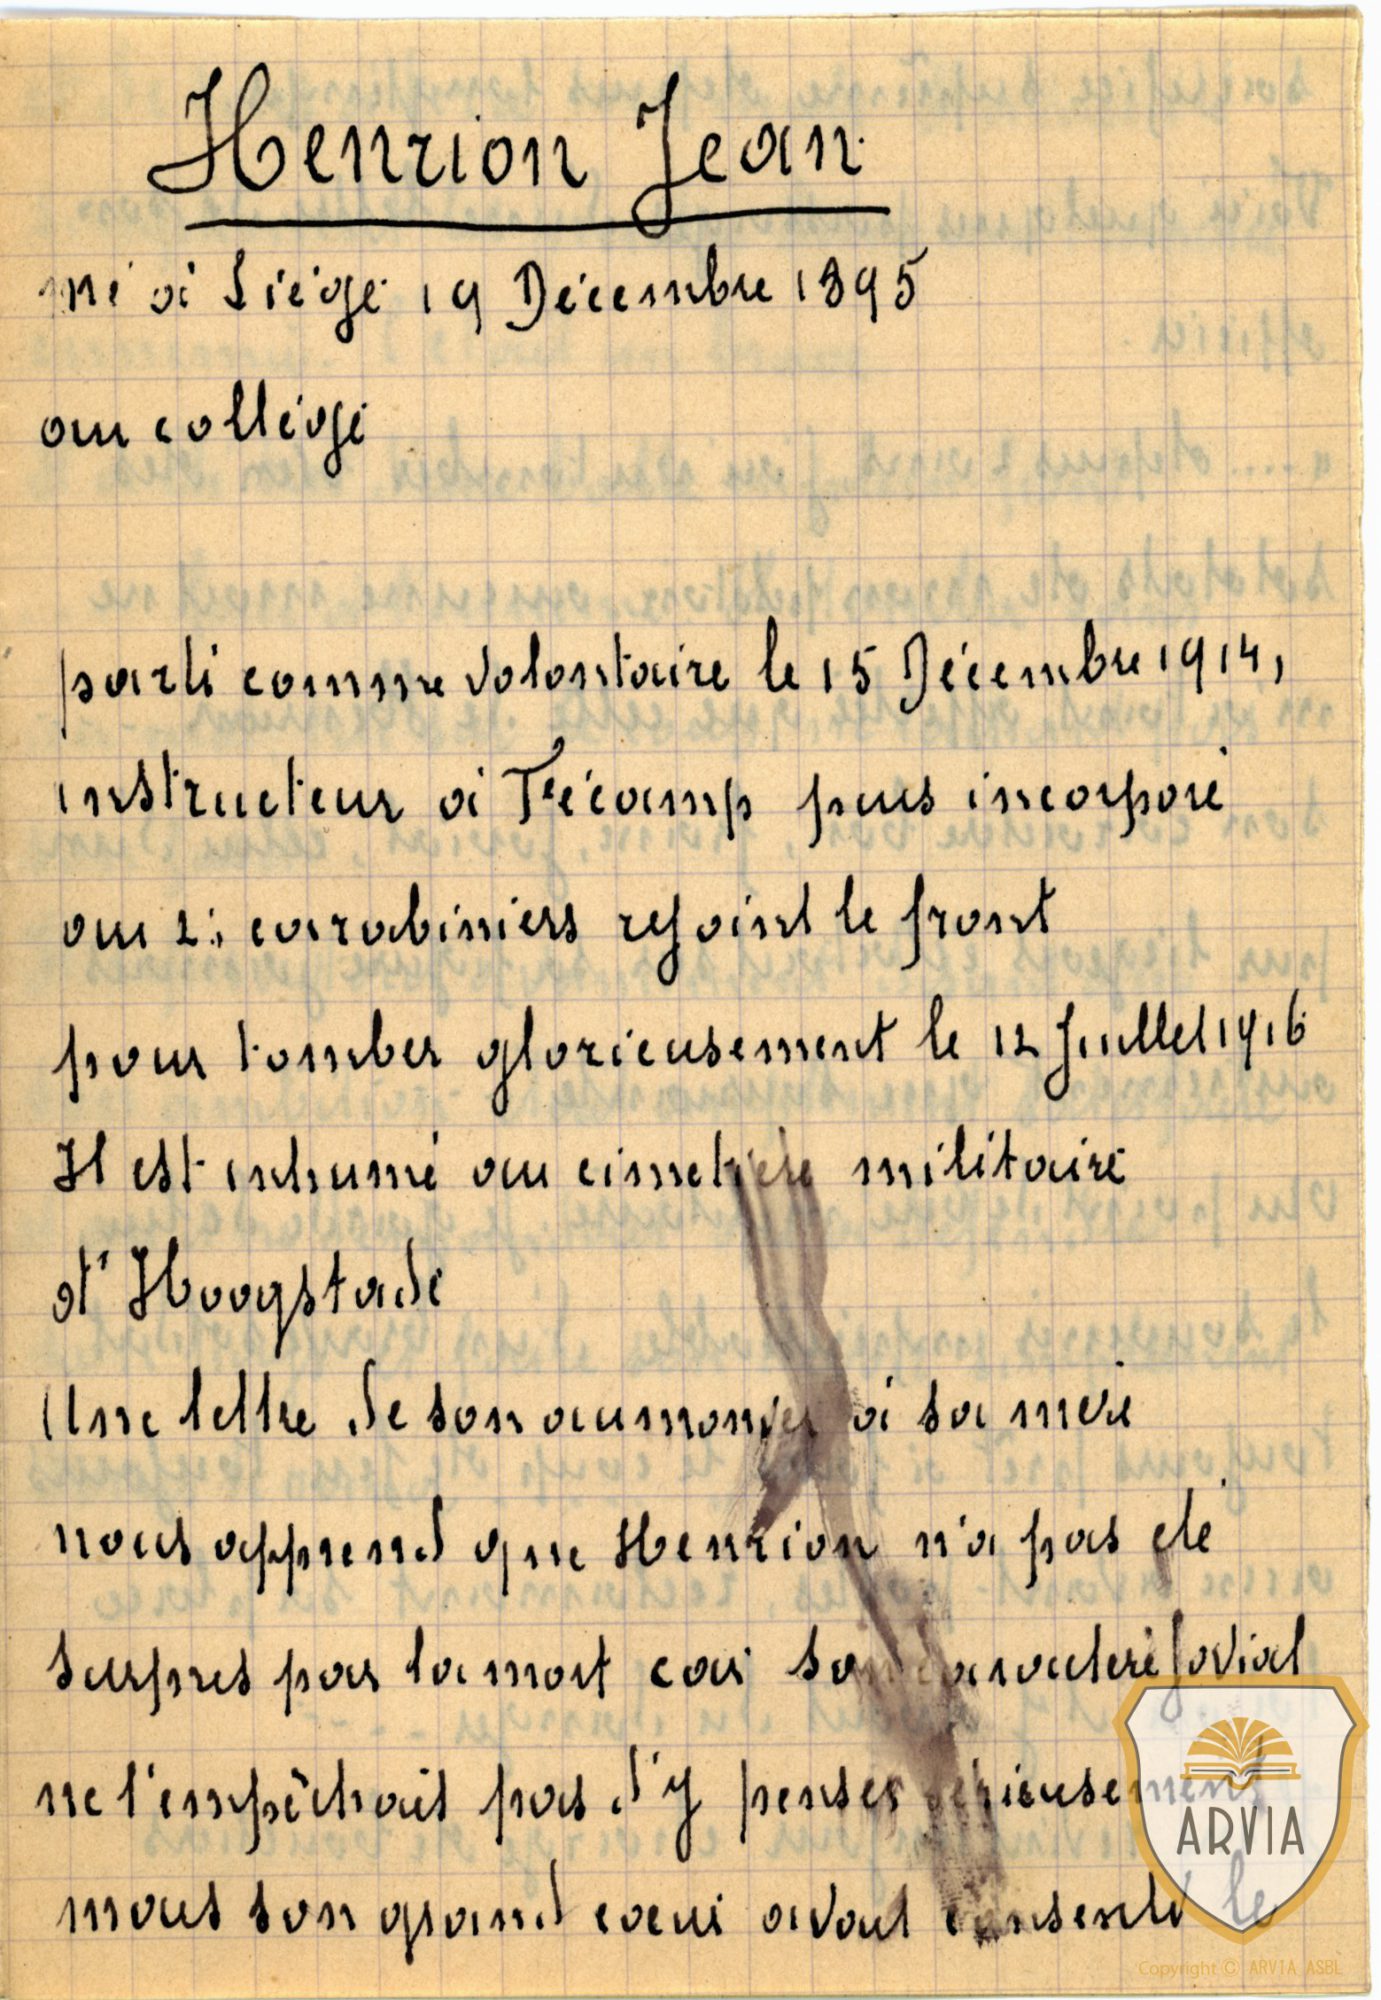 Henrion Jean
né à Liége 19 Décembre 1895
au collége
parti comme volontaire le 15 Décembre 1914,
instructeur à Fécamp puis incorporé
au 2e carabiniers rejoint le front
pour tomber glorieusement le 12 Juillet 1916
Il est inhumé au cimetière militaire
d'Hoogstade
Une lettre de son aumonier à sa mère
nous apprend que Henrion n'a pas été
surpris par la mort car son caractère jovial
ne l'empêchait pas d'y penser sérieusement
mais son grand coeur avait consenti le
ARVIA
Copyright © ARVIA ASBL